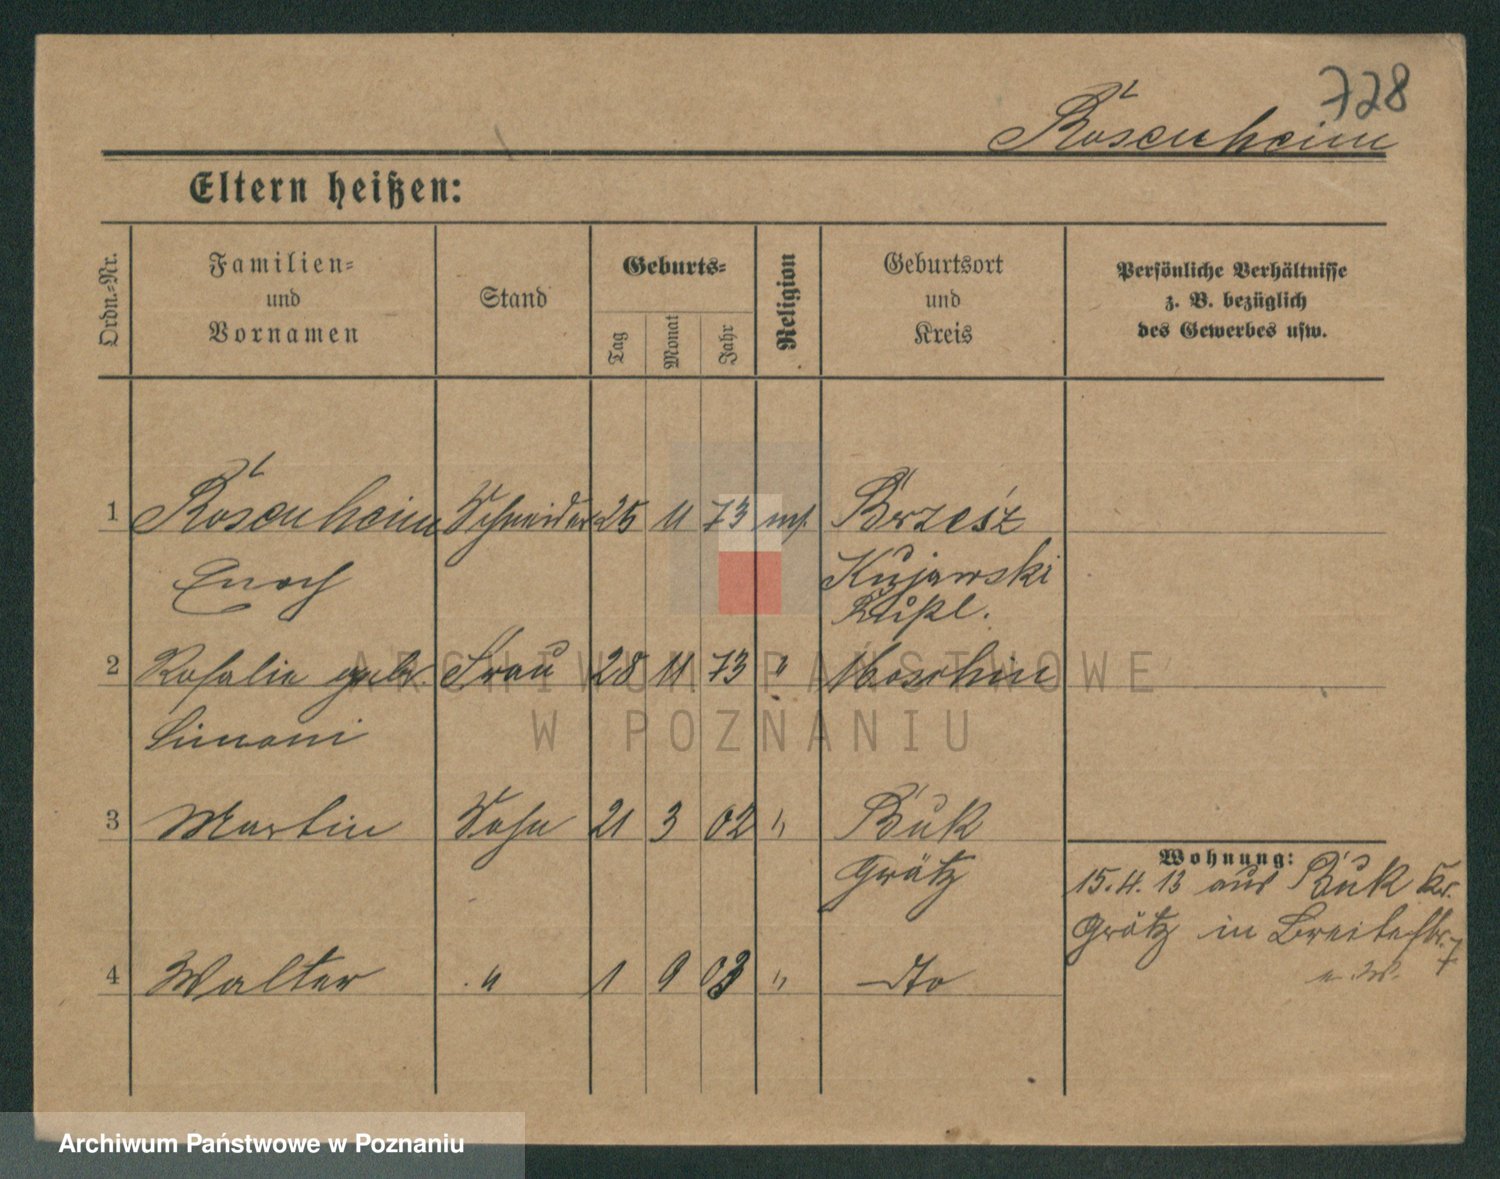 728
Rosenheim
Eltern heißen:
Ordn.-Nr.
Familien-
und
Vornamen
Stand
Geburts-
Tag
Monat
Jahr
Religion
Geburtsort
und
Kreis
Persönliche Verhältnisse
z. B. bezüglich
des Gewerbes usw.
1 Rosenheim Schneider 25 11 73 mos. Brześź
Enoch Kujawski
Rußl.
2 Rosalie geb. Frau 28 11 73 " Moschin
Simoni
3 Martin Sohn 21 3 02 " Buk
Grätz
4 Walter " 1 9 03 " dto
Wohnung:
15.4.13 aus Buk Kr.
Grätz in Breitestr. 7
ARCHIWUM PAŃSTWOWE
W POZNANIU
Archiwum Państwowe w Poznaniu